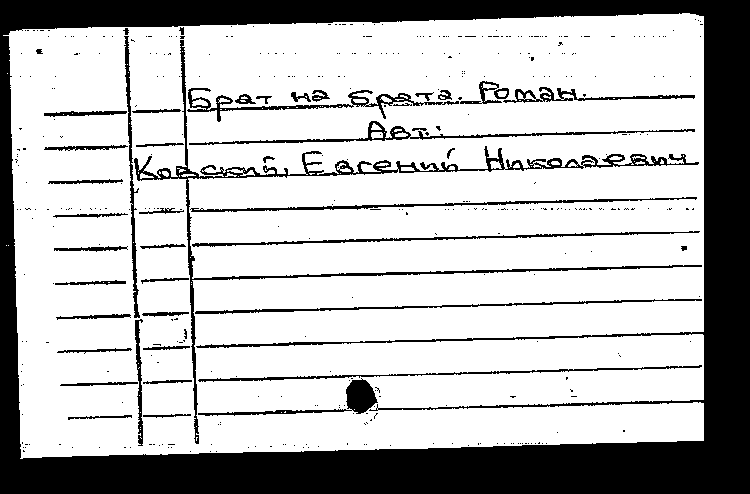 Брат на брата. Роман.
Авт.:
Ковский, Евгений Николаевич